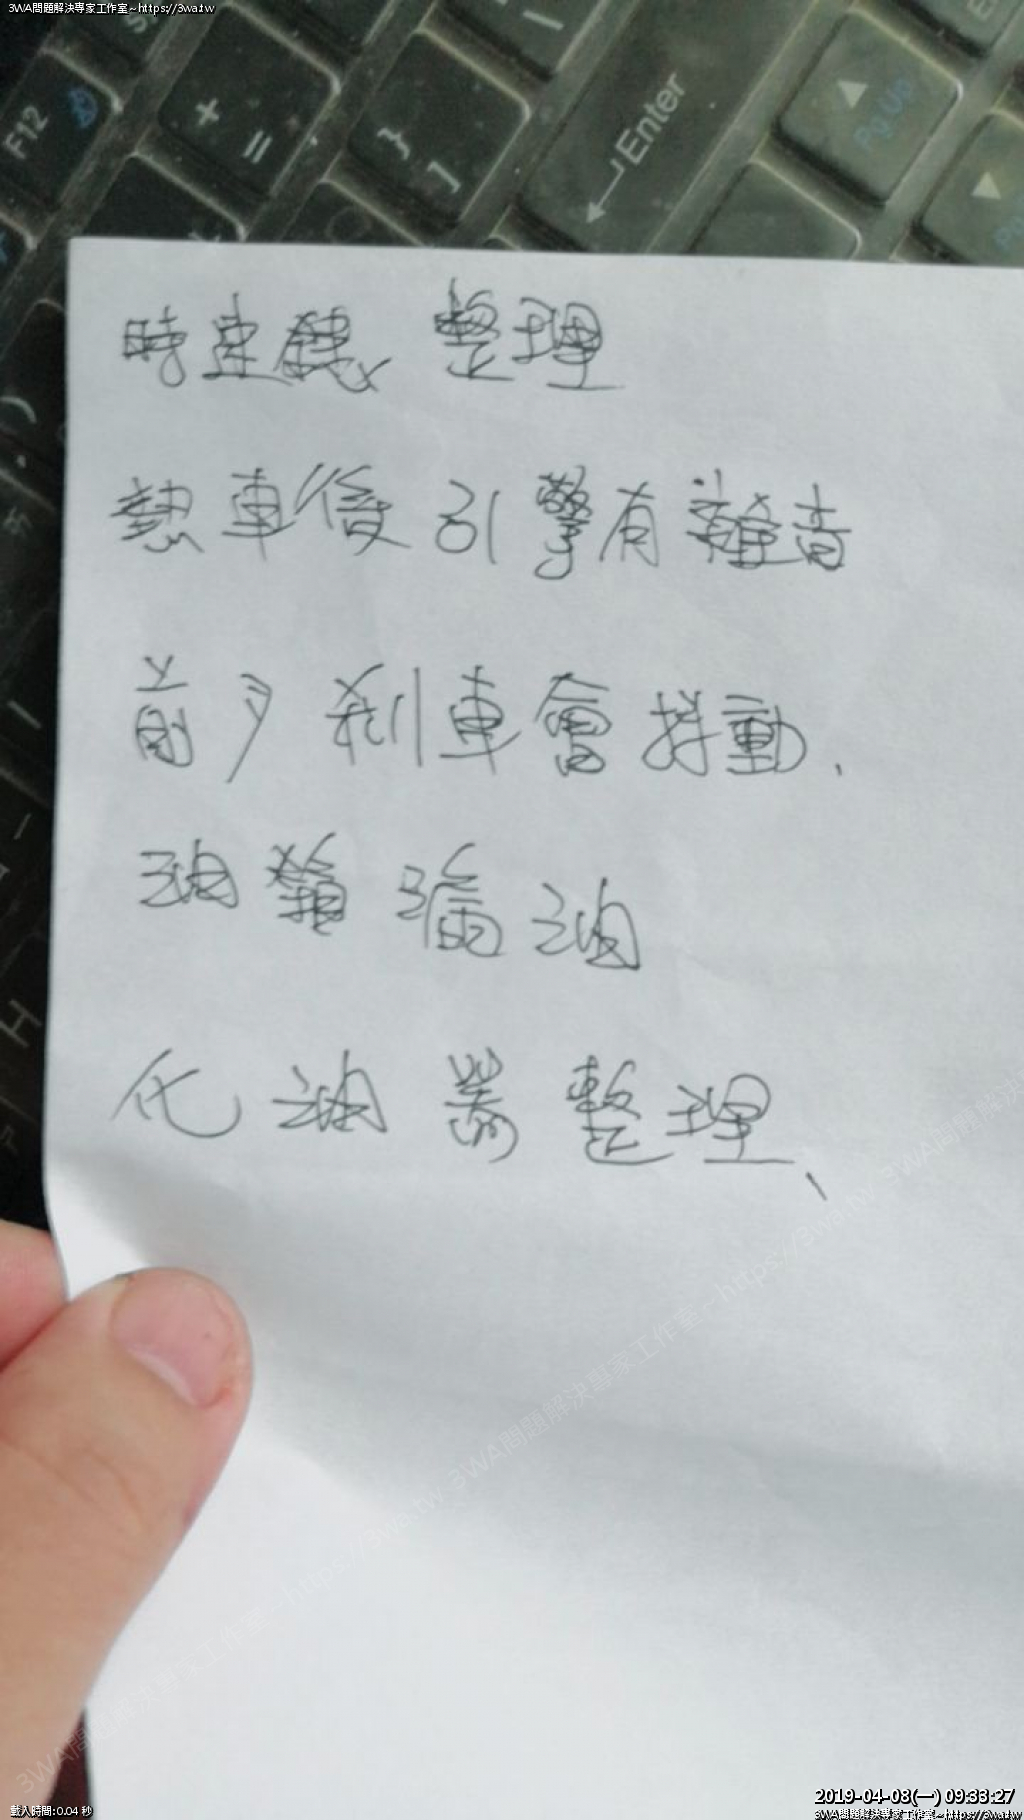 3WA問題解決專家工作室~https://3wa.tw
F12
+
=
}
]
Enter
PgUp
時速錶 整理
熱車後引擎有雜音
前 剎車會抖動.
油箱漏油
化油器整理、
3WA問題解決專家工作室~https://3wa.tw
載入時間:0.04 秒
2019-04-08(一) 09:33:27
3WA問題解決專家工作室~https://3wa.tw